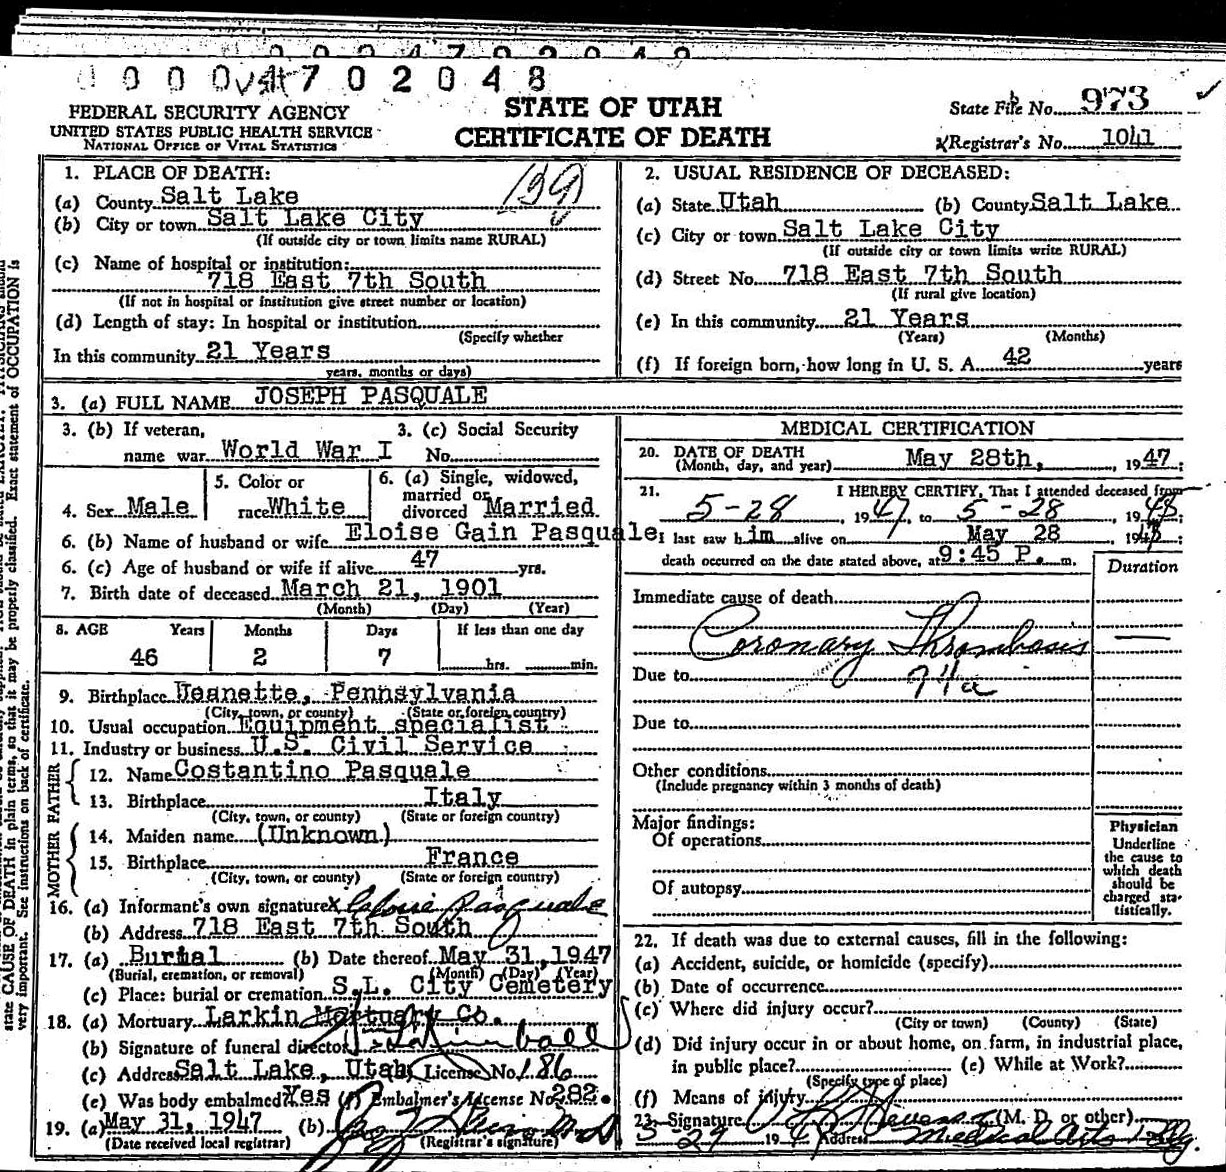 0 0 0 0 7 0 2 0 4 8
FEDERAL SECURITY AGENCY
UNITED STATES PUBLIC HEALTH SERVICE
NATIONAL OFFICE OF VITAL STATISTICS
STATE OF UTAH
CERTIFICATE OF DEATH
State File No. 973
Registrar's No. 1041
1. PLACE OF DEATH:
(a) County Salt Lake
(b) City or town Salt Lake City
(If outside city or town limits name RURAL)
(c) Name of hospital or institution:
718 East 7th South
(If not in hospital or institution give street number or location)
(d) Length of stay: In hospital or institution
(Specify whether
In this community 21 Years
years, months or days)
2. USUAL RESIDENCE OF DECEASED:
(a) State Utah (b) County Salt Lake
(c) City or town Salt Lake City
(If outside city or town limits write RURAL)
(d) Street No. 718 East 7th South
(If rural give location)
(e) In this community 21 Years
(Years) (Months)
(f) If foreign born, how long in U. S. A. 42 years
3. (a) FULL NAME JOSEPH PASQUALE
3. (b) If veteran, 3. (c) Social Security
name war World War I No.
4. Sex Male
5. Color or
race White
6. (a) Single, widowed,
married or
divorced Married
6. (b) Name of husband or wife Eloise Gain Pasquale
6. (c) Age of husband or wife if alive 47 yrs.
7. Birth date of deceased March 21, 1901
(Month) (Day) (Year)
8. AGE Years Months Days If less than one day
46 2 7 hrs. min.
9. Birthplace Jeanette, Pennsylvania
(City, town, or county) (State or foreign country)
10. Usual occupation Equipment specialist
11. Industry or business U.S. Civil Service
FATHER
12. Name Costantino Pasquale
13. Birthplace Italy
(City, town, or county) (State or foreign country)
MOTHER
14. Maiden name (Unknown)
15. Birthplace France
(City, town, or county) (State or foreign country)
16. (a) Informant's own signature X Eloise Pasquale
(b) Address 718 East 7th South
17. (a) Burial (b) Date thereof May 31, 1947
(Burial, cremation, or removal) (Month) (Day) (Year)
(c) Place: burial or cremation S.L. City Cemetery
18. (a) Mortuary Larkin Mortuary Co.
(b) Signature of funeral director
(c) Address Salt Lake, Utah License No. 186
(e) Was body embalmed? Yes (f) Embalmer's License No. 282.
19. (a) May 31, 1947 (b)
(Date received local registrar) (Registrar's signature)
MEDICAL CERTIFICATION
20. DATE OF DEATH
(Month, day, and year) May 28th, 1947;
21. I HEREBY CERTIFY, That I attended deceased from
5-28, 1947, to 5-28, 194
I last saw him alive on May 28, 194
death occurred on the date stated above, at 9:45 P. m.
Duration
Immediate cause of death
Coronary Thrombosis
Due to 94a
Due to
Other conditions
(Include pregnancy within 3 months of death)
Major findings:
Of operations
Of autopsy
Physician
Underline
the cause to
which death
should be
charged sta-
tistically.
22. If death was due to external causes, fill in the following:
(a) Accident, suicide, or homicide (specify)
(b) Date of occurrence
(c) Where did injury occur?
(City or town) (County) (State)
(d) Did injury occur in or about home, on farm, in industrial place,
in public place? (e) While at Work?
(Specify type of place)
(f) Means of injury
23. Signature (M. D. or other)
Address Medical Arts Bldg.
state CAUSE OF DEATH in plain terms, so that it may be properly classified. Exact statement of OCCUPATION is
very important. See instructions on back of certificate.